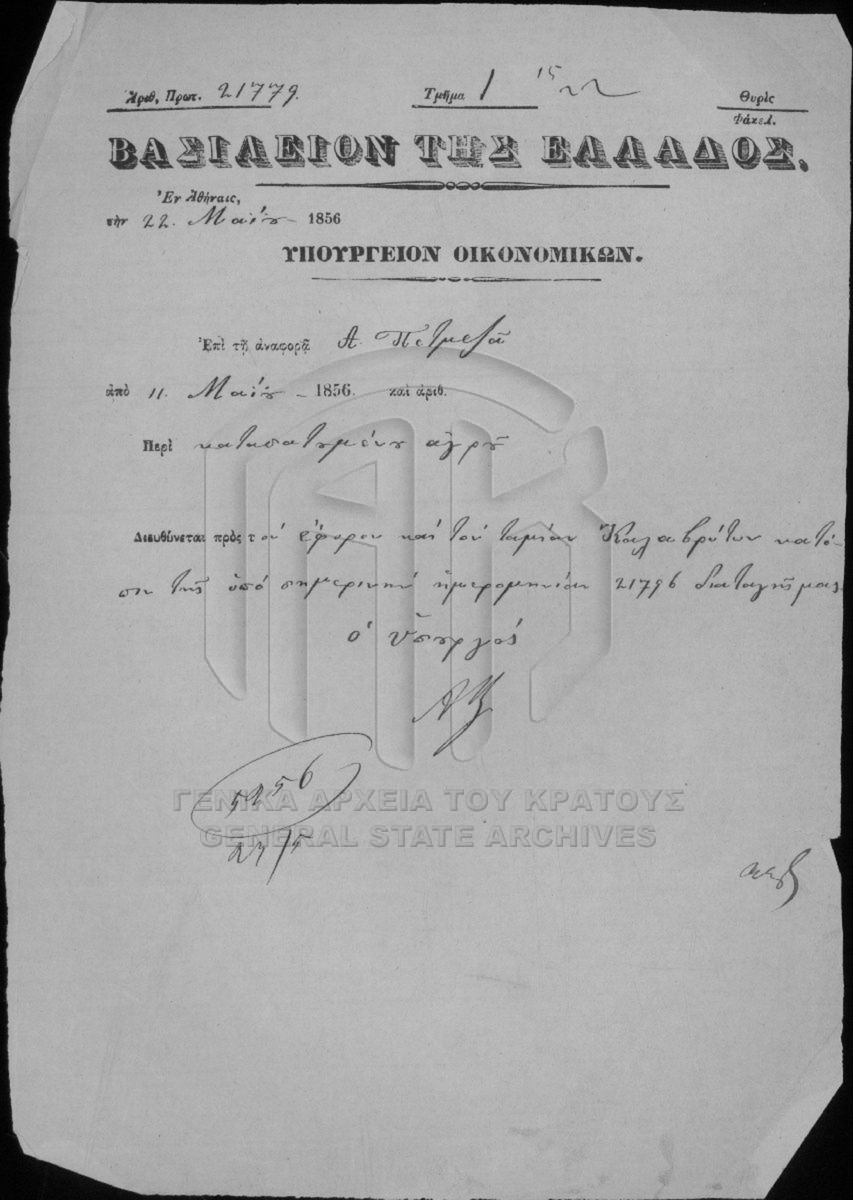 Ἀριθ. Πρωτ. 21779.
Τμῆμα 1
15
22
Θυρὶς
Φάκελ.
ΒΑΣΙΛΕΙΟΝ ΤΗΣ ΕΛΛΑΔΟΣ.
Ἐν Ἀθήναις,
τὴν 22. Μαΐου 1856
ΥΠΟΥΡΓΕΙΟΝ ΟΙΚΟΝΟΜΙΚΩΝ.
Ἐπὶ τῇ ἀναφορᾷ Α. Πετμεζᾶ
ἀπὸ 11. Μαΐου - 1856. καὶ ἀριθ.
Περὶ καταπατουμένου ἀγροῦ
Διευθύνεται πρὸς τὸν ἔφορον καὶ τὸν ταμίαν Καλαβρύτων κατό-
πιν τῆς ὑπὸ σημερινὴν ἡμερομηνίαν 21796 διαταγῆς μας.
ὁ Ὑπουργός
5256
27/5
ΓΕΝΙΚΑ ΑΡΧΕΙΑ ΤΟΥ ΚΡΑΤΟΥΣ
GENERAL STATE ARCHIVES